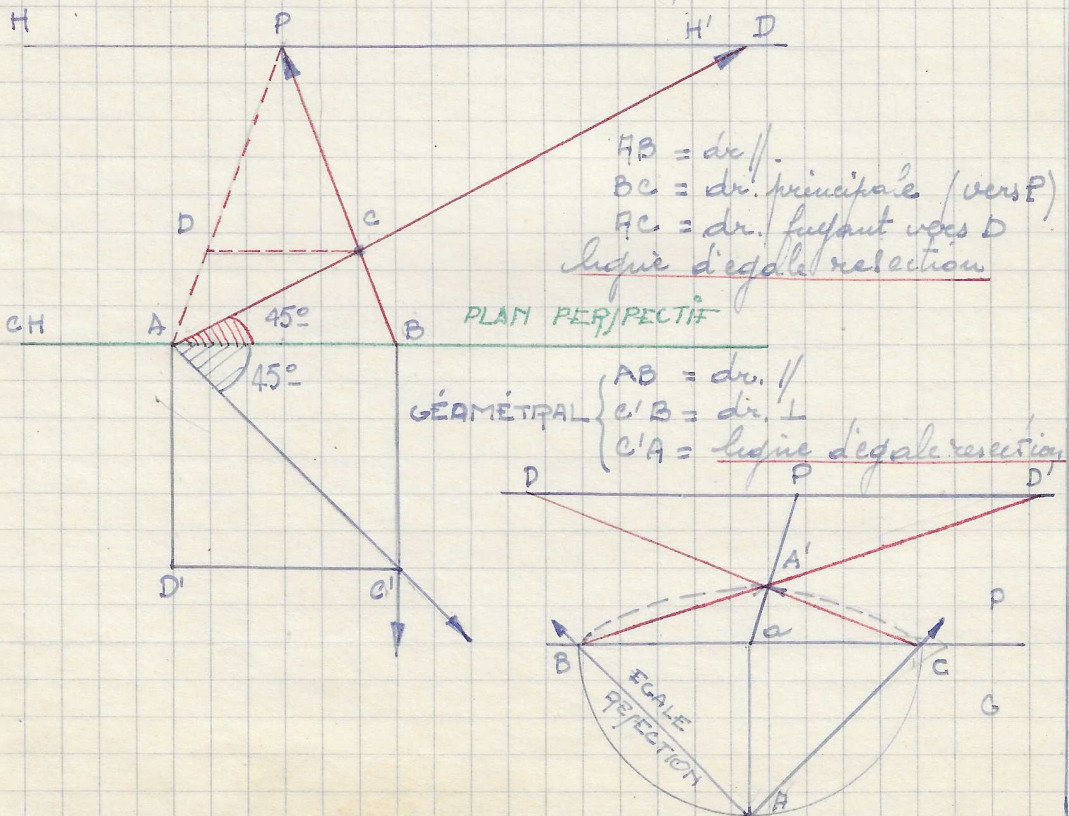 H P H' D
AB = dr //.
BC = dr. principale (vers P)
D C
AC = dr. fuyant vers D
ligne d'egale resection
45°
CH A B PLAN PERSPECTIF
45°
AB = dr. //
GÉAMÉTRAL C'B = dr. ⊥
C'A = ligne d'egale resection
D P D'
A'
D' C'
P
a
B C
EGALE
RESECTION
G
A